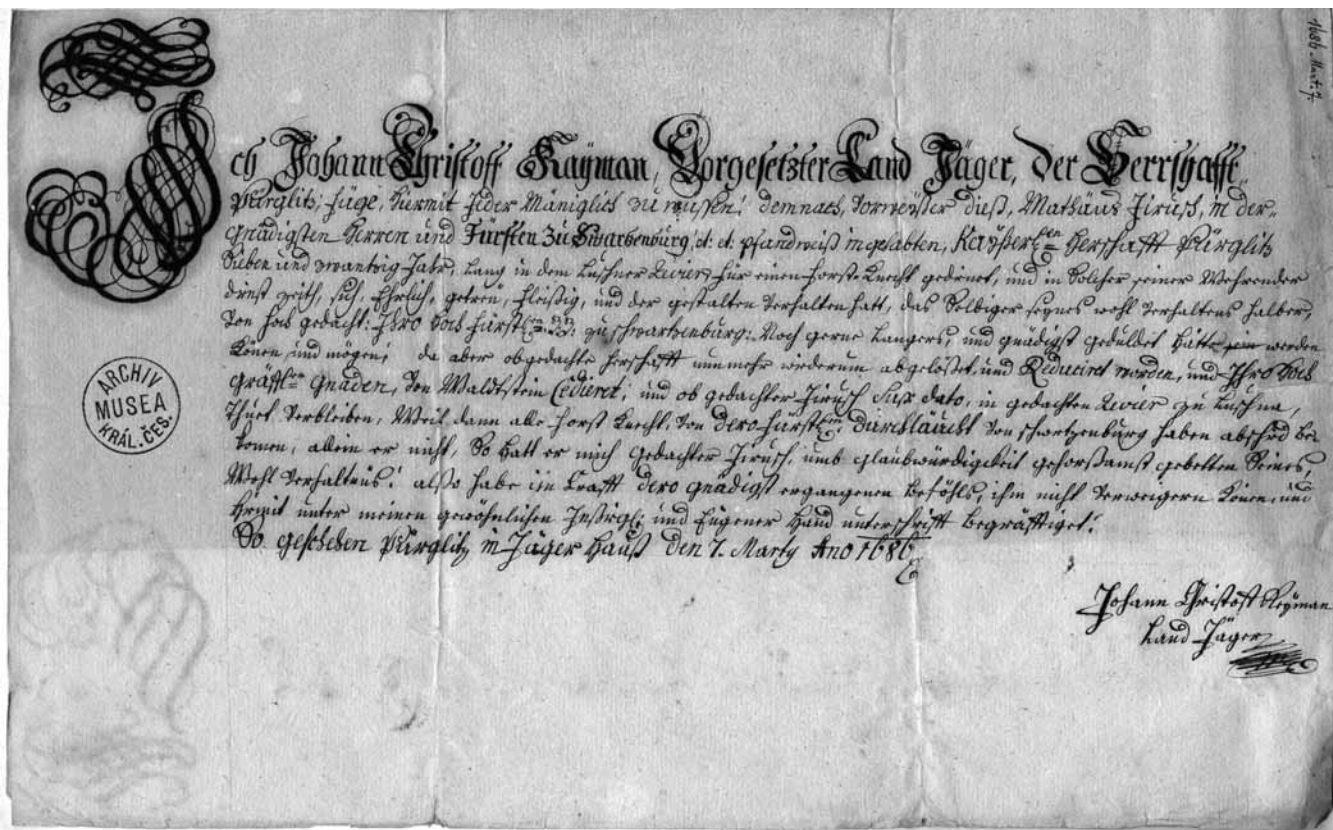 1686 Mart. 7.
Ich Johann Christoff Rayman, Vorgesetzter Land Jäger, der Herrschafft
Pürglitz, füge, hiermit jeder Mäniglich zu wussen! demnach, Vorweißer dieß, Mathäus Jirusch, in der
gnädigsten Herren und Fürsten zu Swartzenburg, et: et: pfandweiß ingehabten, Kaÿßerl:en Herschafft Pürglitz
Sieben und zwantzig Jahr, Lang in dem Luschner Revier, für einen forst Knecht gedienet, und in Solcher seiner Wehrender
dinst zeith, sich, Ehrlich, getreu, fleißig, und der gestalten verhalten hatt, das Selbiger seynes wohl verhaltens halber,
von hoch gedacht: Ihro Hoch fürstl:en zu schwartzenburg: Noch gerne Langers, und gnädigst geduldet hätte werden
Könen, und mögen, da aber obgedachte herschafft nunmehr wiederum abgelößet, und Reduciret worden, und Ihro Hoch
gräffl:en gnaden, von Waldtstein Cediret, und ob gedachter Jirusch dato, in gedachten Revier zu Luschna,
thuet verbleiben, Weil dann alle forst Knecht, von dero fürstl: durchläucht von schwartzenburg haben abschid be
komen, allein er nicht, So hatt er mich gedachter Jirusch, umb glaubwürdigkeit gehorsamst gebetten Seines,
Wohl verhaltnus! alßo habe im Crafft dero gnädigst ergangenen befehls, ihm nicht verweigern Könen, und
hirmit unter meinen gewöhnlichen Insigl: und Eugener Hand unterschrifft begräfftiget!
So geschehen Pürglitz in Jäger Hauß den 7. Marty Ano 1686
Johann Christoff Reyman
Land Jäger
ARCHIV
MUSEA
KRÁL. ČES.